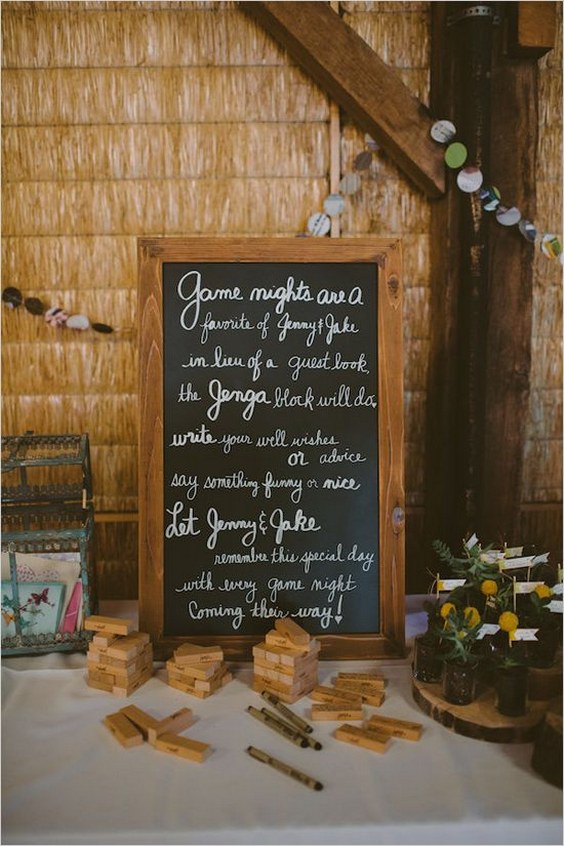 Game nights are a
favorite of Jenny & Jake
in lieu of a guest book,
the Jenga block will do,
write your well wishes
or advice
say something funny or nice
Let Jenny & Jake
remember this special day
with every game night
Coming their way!